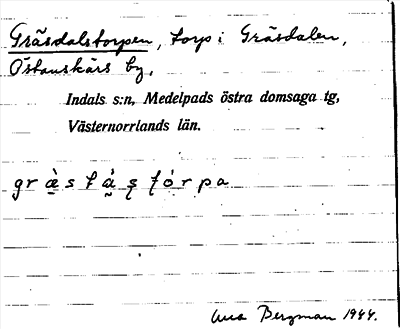 Gräsdalstorpen, torp i Gräsdalen,
Östanskärs by,
Indals s:n, Medelpads östra domsaga tg,
Västernorrlands län.
Bergman 1944.